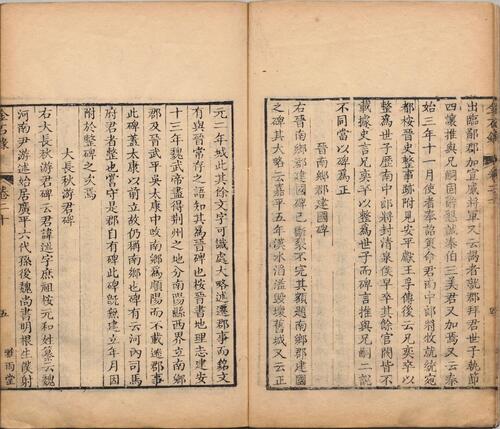 出臨鄴郡加宣威將軍又云謁者就郡拜君世子孰節
四讓推與兄嗣固辭懇誠奏伯三美君又加焉又云泰
始三年十一月使者奉詔策命君南中郎將牧統統宛
都按晉史整事蹟附見安平獻王孚傳後云兄奕卒以
整為世子歷南中郎將封清泉侯早卒其餘官閥皆不
載據史言兄奕卒以整為世子而碑言推與兄嗣二説
不同當以碑為正
晉南鄉郡建國碑
右晉南鄉郡建國碑已斷裂不完其額題南鄉郡建國
之碑其大略云嘉平五年漢水滔溢毀壞舊城又云正
元二年城此其餘文字可識處大略述遷郡事而銘文
有與晉常存之語知其為晉碑也按晉書地理志建安
十三年魏武帝盡得荆州之地分南陽縣西界立南鄉
郡及晉武平吳太康中改南鄉為順陽而不載遷郡事
此碑蓋太康以前立故仍稱南鄉也碑有云河内司馬
府君者整也嘗守是郡自有碑此碑既銳建立年月因
附於整碑之次焉
大長秋游君碑
右大長秋游君碑云君諱述字庶祖按元和姓纂云魏
河南尹游述始居廣平六代孫後魏尚書明根生僕射
金石錄
卷二十
五
雅雨堂